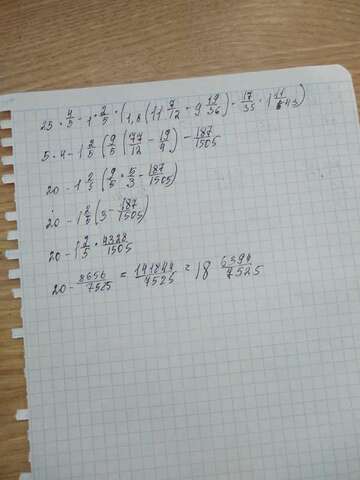 25 · 4/5 - 1 2/5 · (1,8 (11 7/12 - 9 19/36) - 17/35 · 1 11/
5 · 4 - 1 2/5 (9/5 (77/12 - 19/4) - 187/1505
20 - 1 2/5 (9/5 · 5/3 - 187/1505)
20 - 1 2/5 (3 - 187/1505)
20 - 1 2/5 · 4328/1505
20 - 8656/7525 = 141844/7525 = 18 6394/7525